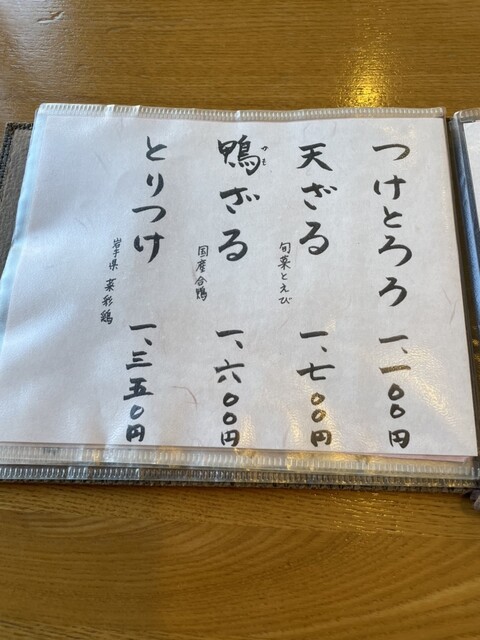 つけとろろ 一、一〇〇円
天ざる 一、七〇〇円
旬菜とえび
鴨ざる 一、六〇〇円
かも
国産合鴨
とりつけ 一、三五〇円
岩手県 菜彩鶏